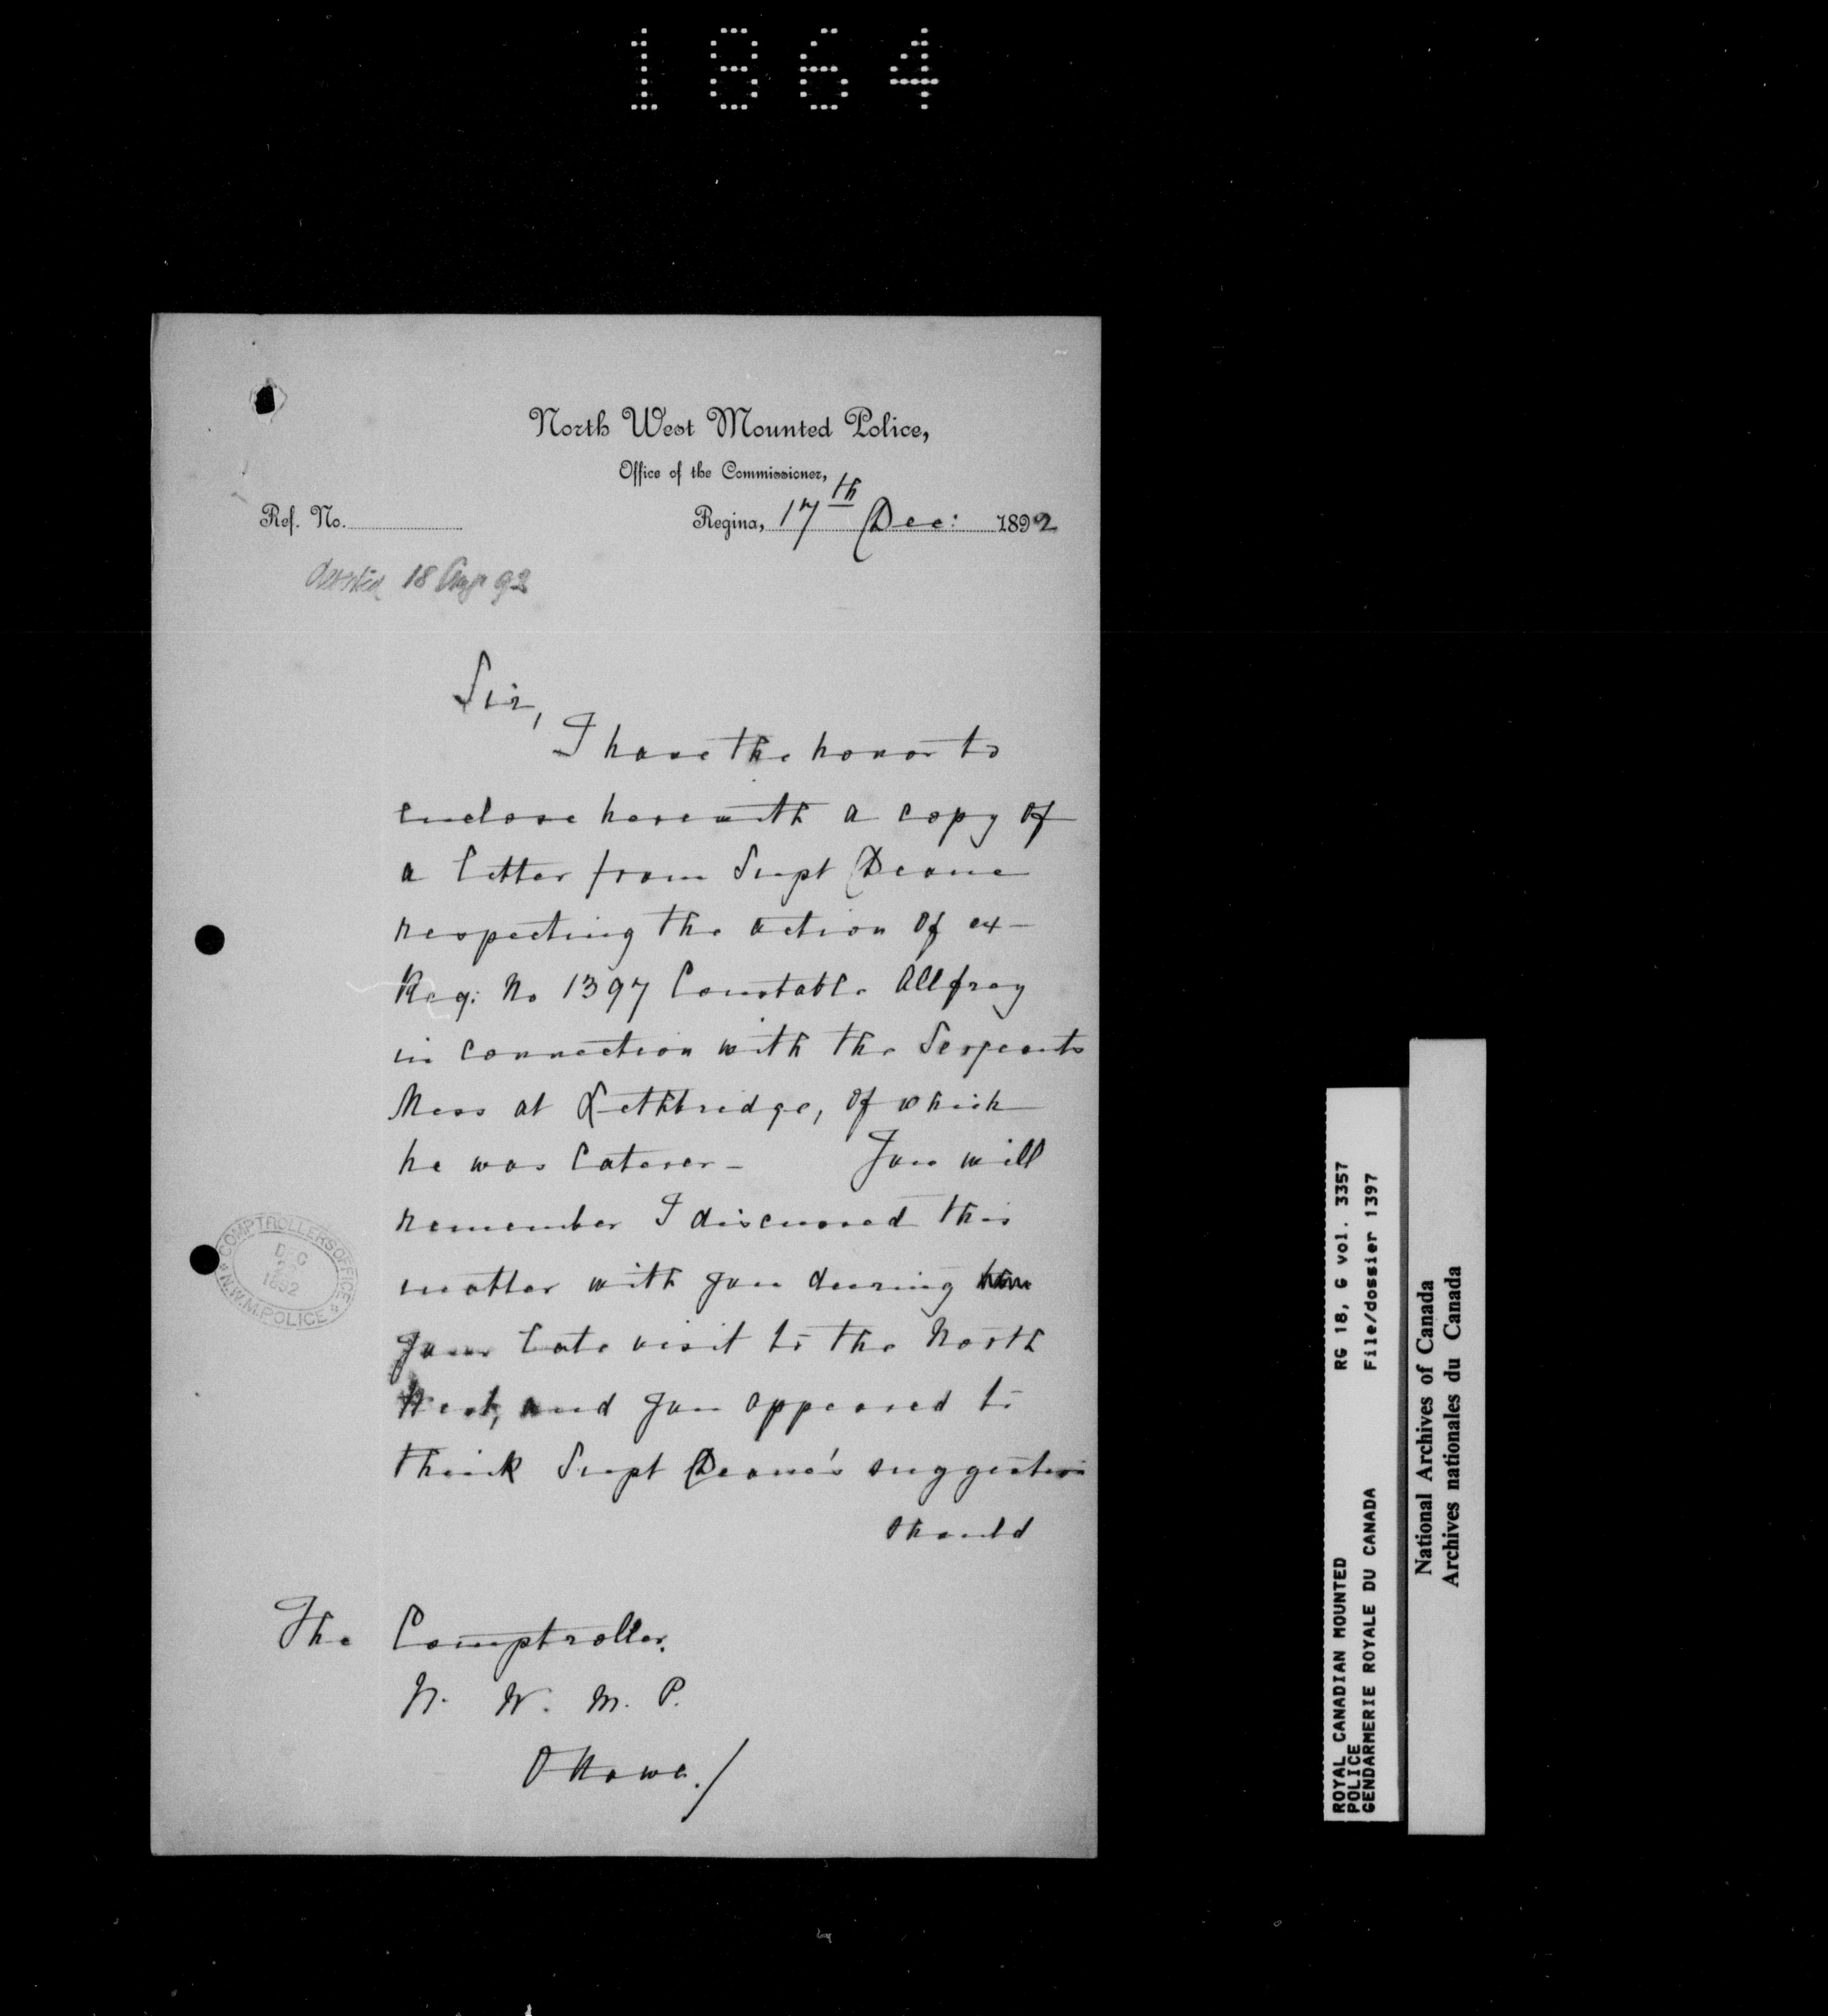 1864
North West Mounted Police,
Office of the Commissioner,
Ref. No.
Regina, 17th Dec: 1892
18 Aug 92
Sir,
I have the honor to
enclose herewith a copy of
a letter from Supt Deane
respecting the action of ex-
Reg: No 1397 Constable Allfrey
in connection with the Sergeants
Mess at Lethbridge, of which
he was Caterer - You will
remember I discussed this
matter with you during
your late visit to the North
West, and you appeared to
think Supt Deane's suggestion
should
The Comptroller.
N. W. M. P.
Ottawa./
COMPTROLLERS OFFICE
DEC
1892
N.W.M. POLICE
ROYAL CANADIAN MOUNTED RG 18, G vol. 3357
POLICE
GENDARMERIE ROYALE DU CANADA File/dossier 1397
National Archives of Canada
Archives nationales du Canada